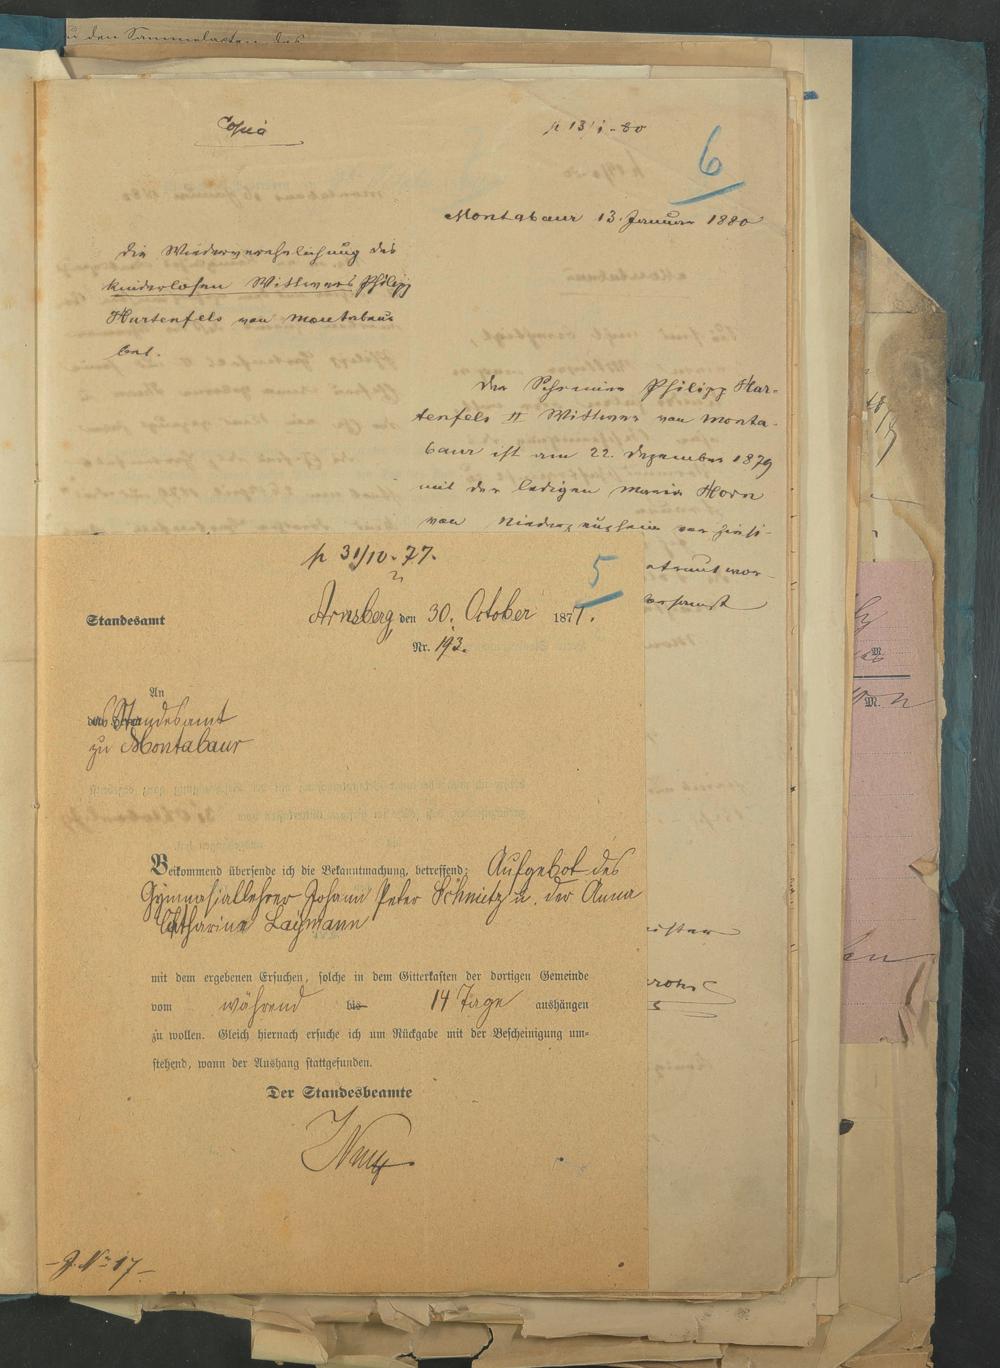 zu den Sammelakten des
Copia
p 13/1-80
6
Montabaur 13. Januar 1880
die Wiederverehelichung des
kinderlosen Wittwers Philipp
Hartenfels von Montabaur
bet.
Der Schreiner Philipp Har-
tenfels II Wittwer von Monta-
baur ist am 22. Dezember 1879
mit der ledigen Maria Horn
von
p 31/10. 77.
5
Standesamt
Arnsberg, den 30. October 1877.
Nr. 193.
An
das Standesamt
zu Montabaur
Beikommend übersende ich die Bekanntmachung, betreffend: Aufgebot des
Gymnasiallehrer Johann Peter Schmitz u. der Anna
Catharine Laymann
mit dem ergebenen Ersuchen, solche in dem Gitterkasten der dortigen Gemeinde
vom während bis 14 Tage aushängen
zu wollen. Gleich hiernach ersuche ich um Rückgabe mit der Bescheinigung um-
stehend, wann der Aushang stattgefunden.
Der Standesbeamte
J. No 17